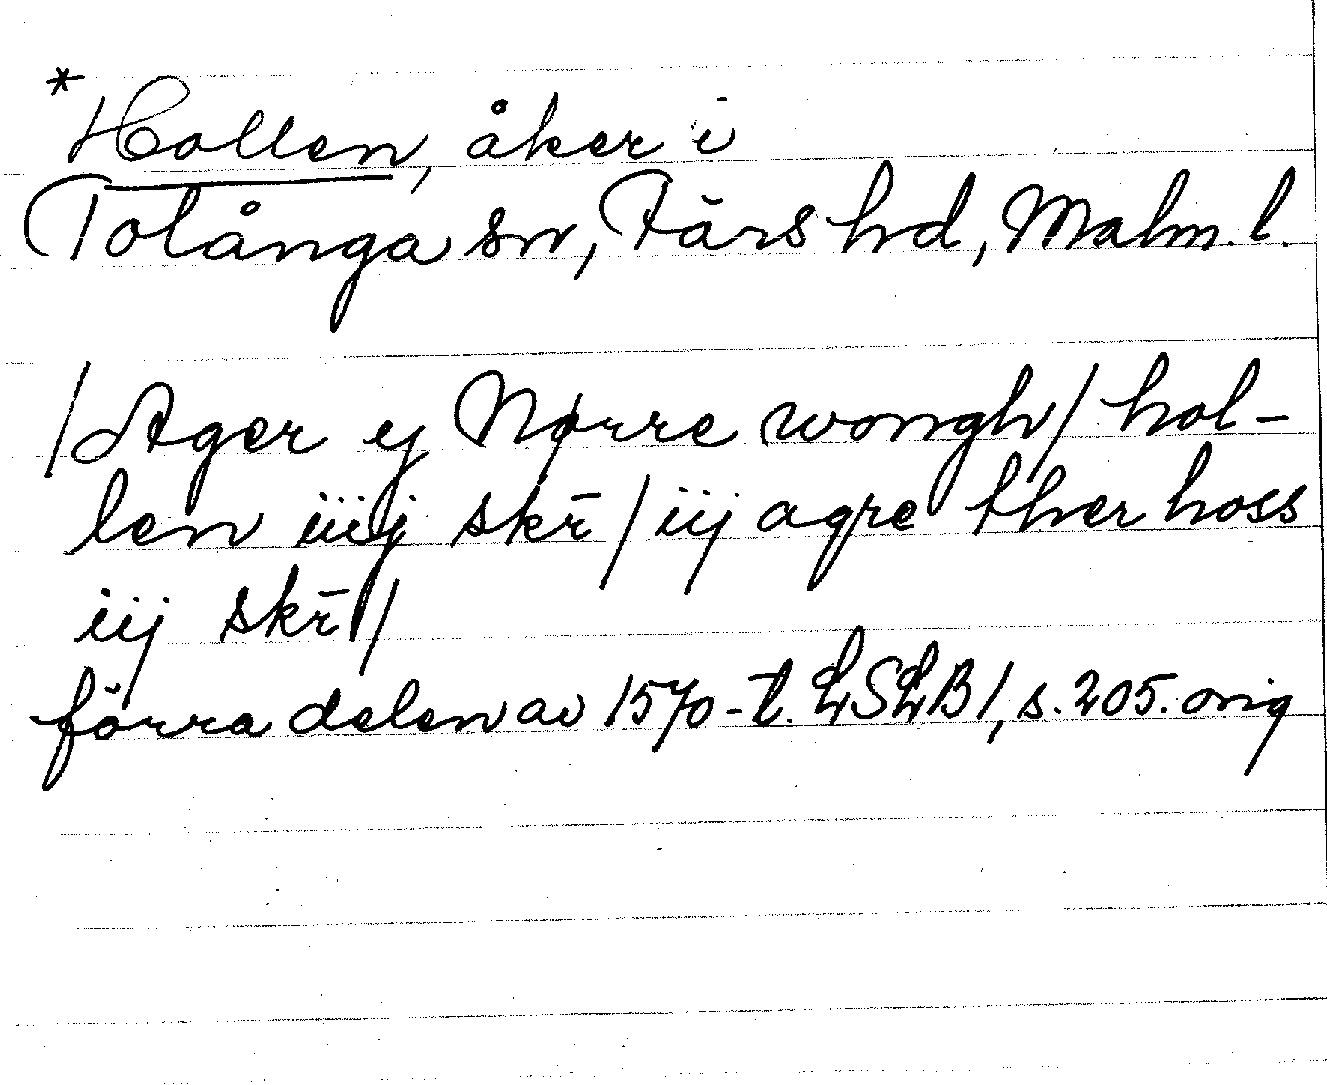 *Hollen, åker i
Tolånga sn, Färs hd, Malm. l.
/Ager ej Nørre wongh/ hol-
len iiij skr̄ / iij agre ther hoss
iij skr̄ /
förra delen av 1570-t. LSLB 1, s. 205. orig